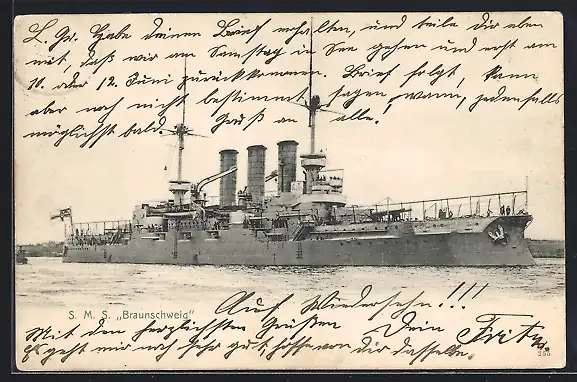 L. Gr. Habe deinen Brief erhalten, und teile Dir eben
mit, daß wir am Samstag in See gehen und erst am
10. oder 12. Juni zurückkommen. Brief folgt, kann
aber noch nicht bestimmt sagen, wann, jedenfalls
möglichst bald. Gruß an alle!
S. M. S. „Braunschweig"
Auf Wiedersehn!!!
Mit den herzlichsten Grüßen Dein Fritz
Es geht mir noch sehr gut, hoffe von dir dasselbe.